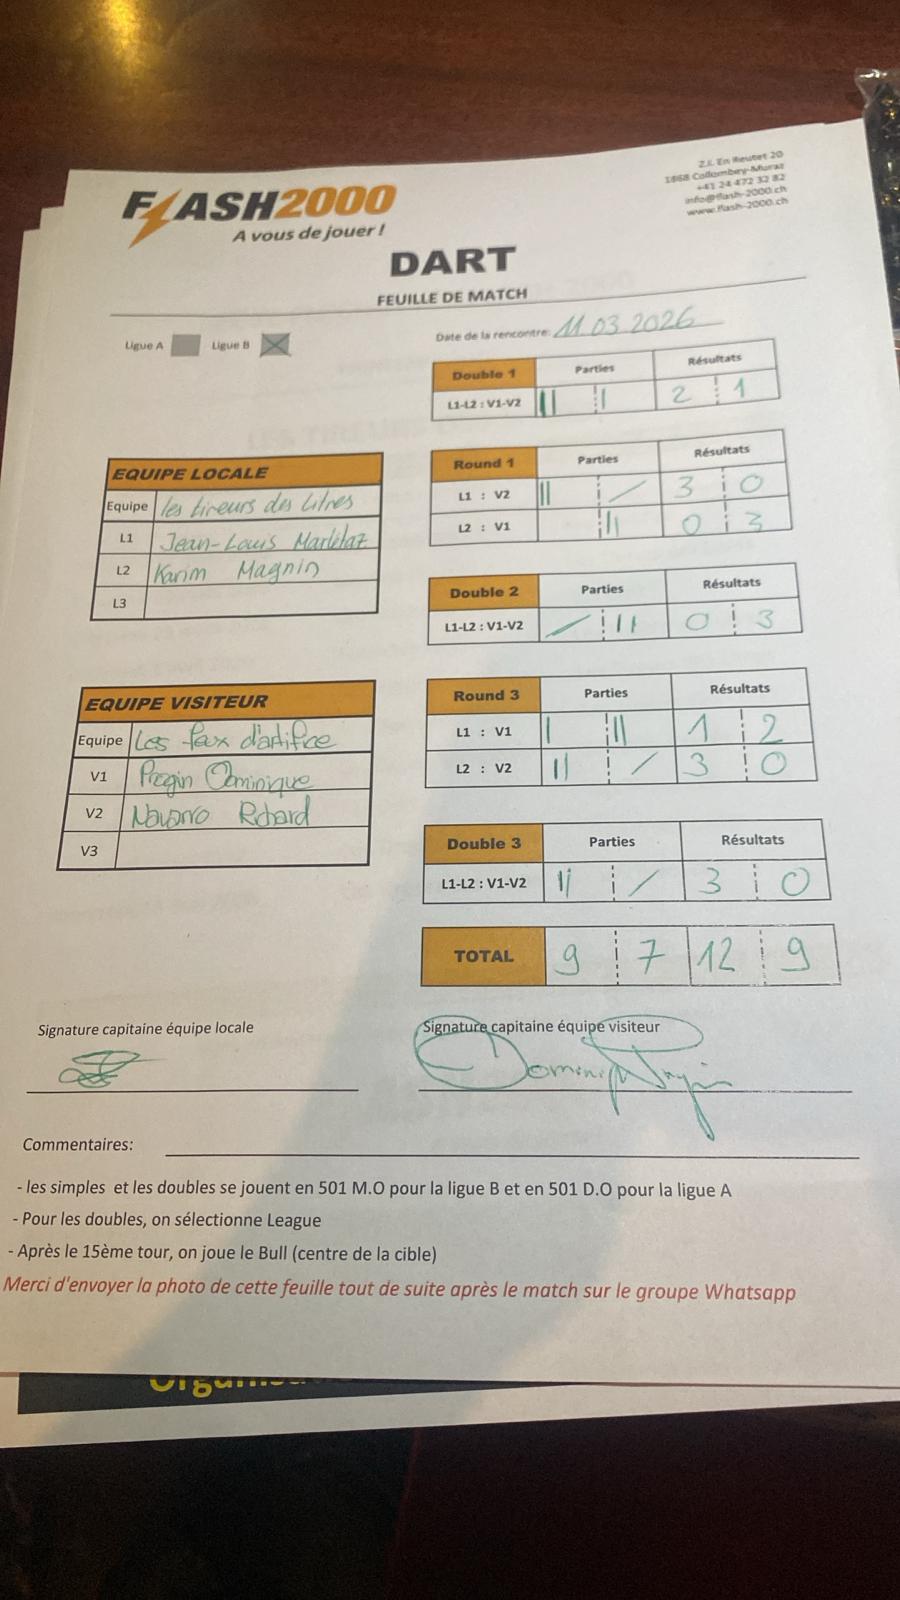 FLASH2000
A vous de jouer !
Z.I. En Reutet 20
1868 Collombey-Muraz
+41 24 472 32 82
info@flash-2000.ch
www.flash-2000.ch
DART
FEUILLE DE MATCH
Ligue A Ligue B
Date de la rencontre: 11.03.2026
Double 1 Parties Résultats
L1-L2 : V1-V2 || | 2 1
EQUIPE LOCALE
Equipe les tireurs des Litres
L1 Jean-Louis Martétaz
L2 Karim Magnin
L3
Round 1 Parties Résultats
L1 : V2 || / 3 0
L2 : V1 || 0 3
Double 2 Parties Résultats
L1-L2 : V1-V2 / || 0 3
EQUIPE VISITEUR
Equipe Les feux d'artifice
V1 Progin Dominique
V2 Navarro Richard
V3
Round 3 Parties Résultats
L1 : V1 | || 1 2
L2 : V2 || / 3 0
Double 3 Parties Résultats
L1-L2 : V1-V2 || / 3 0
TOTAL 9 7 12 9
Signature capitaine équipe locale
Signature capitaine équipe visiteur
Commentaires:
- les simples et les doubles se jouent en 501 M.O pour la ligue B et en 501 D.O pour la ligue A
- Pour les doubles, on sélectionne League
- Après le 15ème tour, on joue le Bull (centre de la cible)
Merci d'envoyer la photo de cette feuille tout de suite après le match sur le groupe Whatsapp